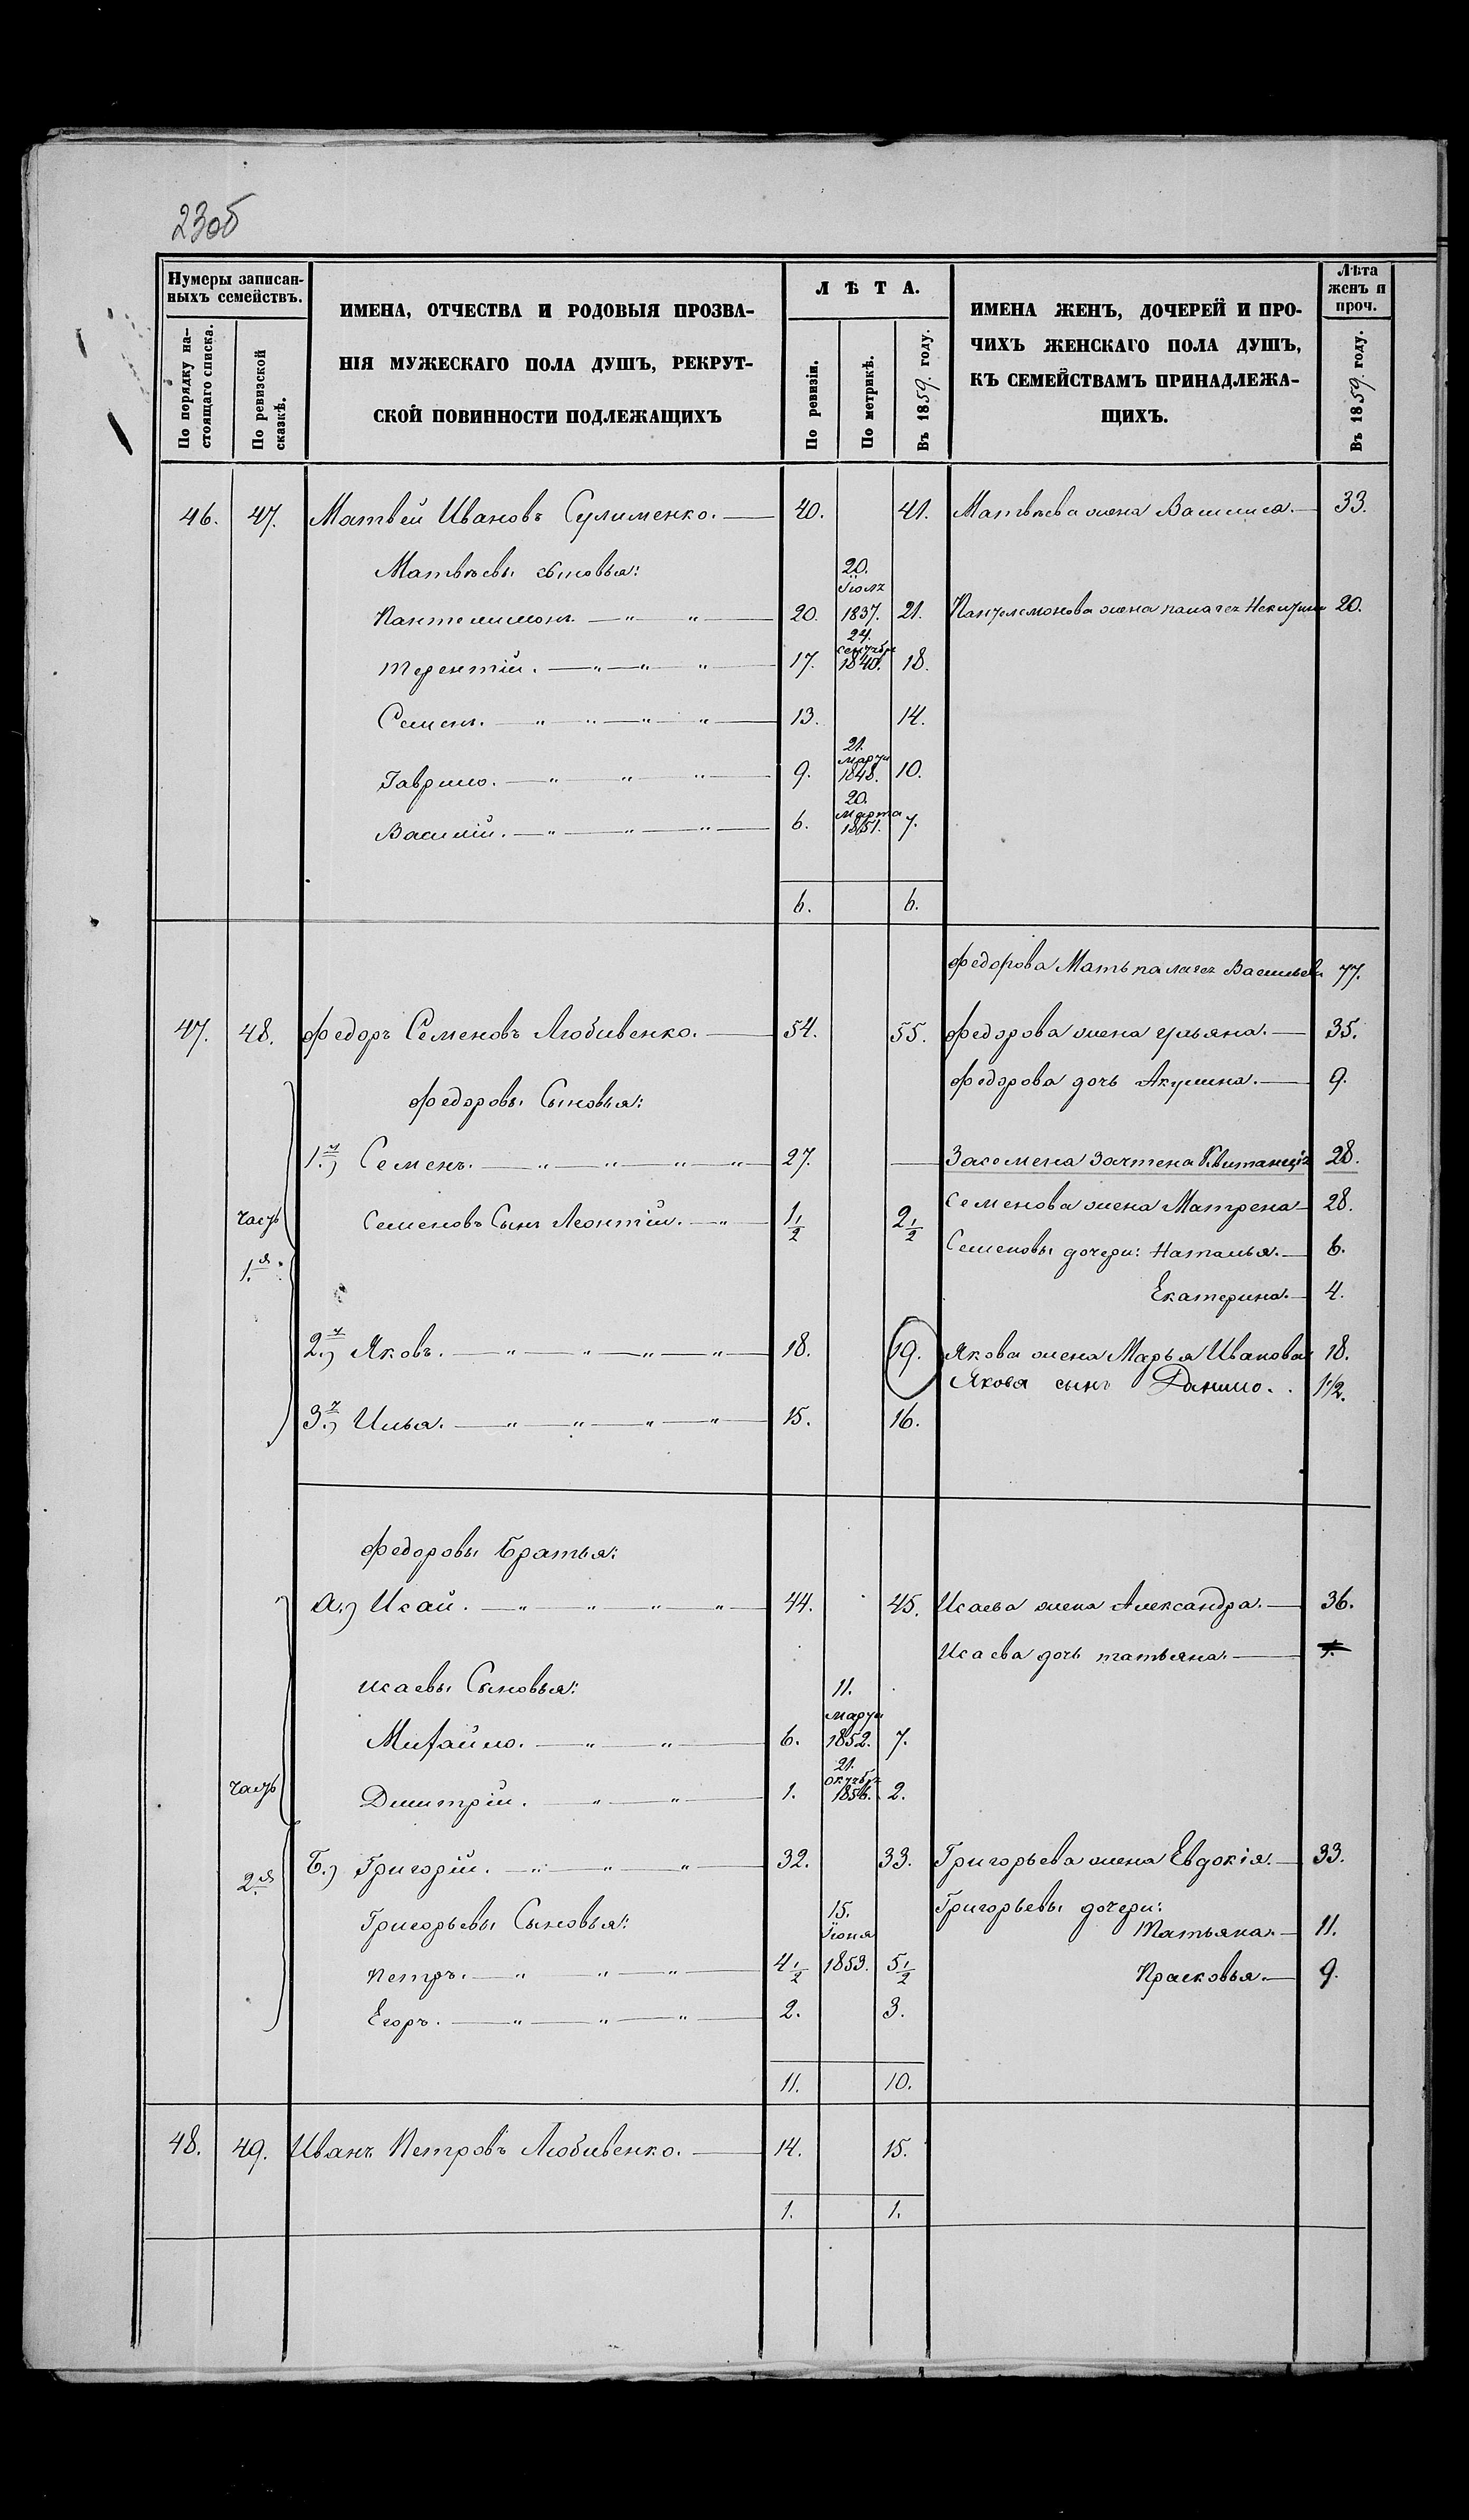 23об
Нумеры записан-
ныхъ семействъ.
По порядку на-
стоящаго списка.
По ревизской
сказкѣ.
ИМЕНА, ОТЧЕСТВА И РОДОВЫЯ ПРОЗВА-
НІЯ МУЖЕСКАГО ПОЛА ДУШЪ, РЕКРУТ-
СКОЙ ПОВИННОСТИ ПОДЛЕЖАЩИХЪ
ЛѢТА.
По ревизіи.
По метрикѣ.
Въ 1859. году.
ИМЕНА ЖЕНЪ, ДОЧЕРЕЙ И ПРО-
ЧИХЪ ЖЕНСКАГО ПОЛА ДУШЪ,
КЪ СЕМЕЙСТВАМЪ ПРИНАДЛЕЖА-
ЩИХЪ.
Лѣта
женъ и
проч.
Въ 1859. году.
46. 47. Матвей Ивановъ Сулименко. 40. 41. Матвѣева жена Василиса. 33.
Матвѣевы сыновья:
20.
Іюля
Пантелимонъ. 20. 1837. 21. Пантелемонова жена 20.
24.
сентября
Терентій. 17. 1840. 18.
Семенъ. 13. 14.
21.
марта
Гаврило. 9. 1848. 10.
20.
Марта
Василій. 6. 1851. 7.
6. 6.
Федорова Мать Васильева 77.
47. 48. Федоръ Семеновъ Любивенко. 54. 55. Федорова жена Ульяна. 35.
Федорова дочь Акулина. 9.
Федоровы Сыновья:
1.й) Семенъ. 27. За семена зачтена Квитанція 28.
Часть
1.я
Семеновъ Сынъ Леонтій. 1 1/2 2 1/2 Семенова жена Матрена 28.
Семеновы дочери: Наталья. 6.
Екатерина. 4.
2.й) Яковъ. 18. 19. Якова жена Марья Иванова 18.
Якова сынъ Данило. 1 1/2.
3.й) Илья. 15. 16.
Федоровы Братья:
а.) Исай. 44. 45. Исаева жена Александра. 36.
Исаева дочь татьяна.
исаевы Сыновья:
11.
марта
Михайло. 6. 1852. 7.
21.
октября
Часть
2.я
Дмитрій. 1. 1856. 2.
Б.) Григорій. 32. 33. Григорьева жена Евдокія. 33.
Григорьевы Сыновья: Григорьевы дочери:
15.
Іюня
Татьяна. 11.
Петръ. 4 1/2 1853. 5 1/2 Прасковья. 9.
Егоръ. 2. 3.
11. 10.
48. 49. Иванъ Петровъ Любивенко. 14. 15.
1. 1.